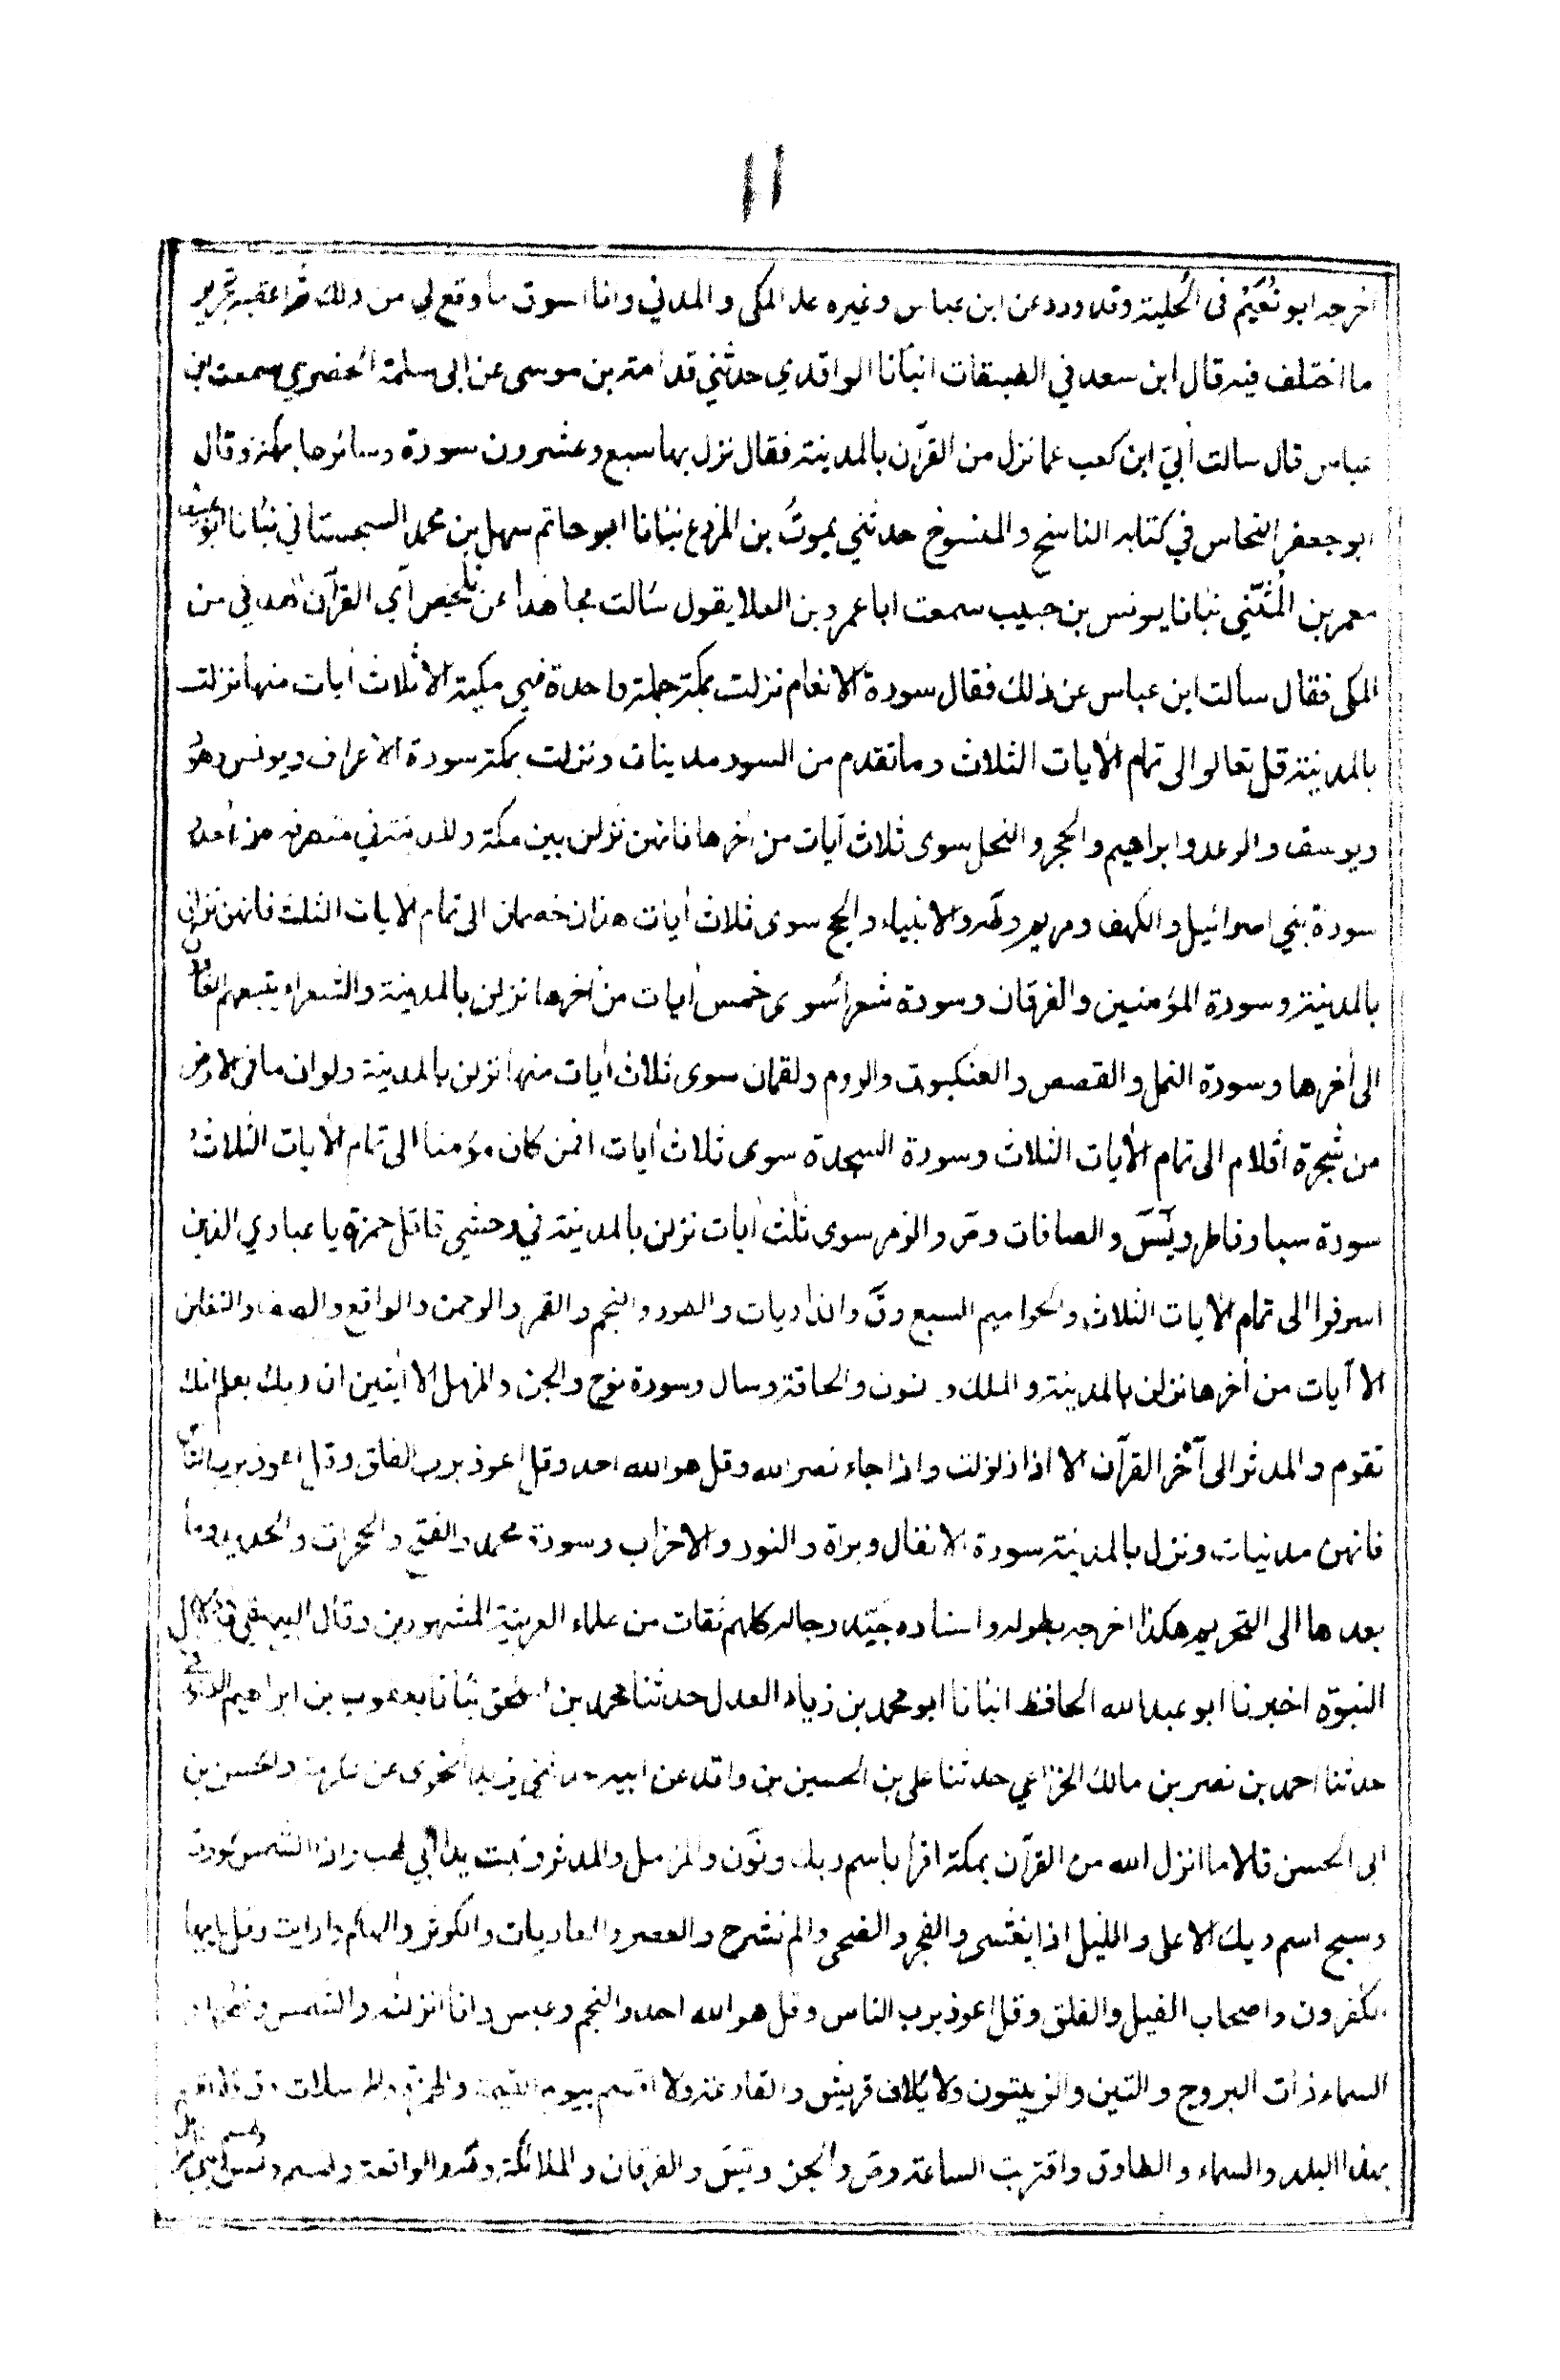 ١١
اخرجه ابو نُعَيْم فى الحلية وقد ورد عن ابن عباس وغيره عد المكى والمدني وانا اسوق ما وقع لي من ذلك ثم اعقبه بتحرير
ما اختلف فيه قال ابن سعد في الطبقات انبأنا الواقدي حدثني قدامة بن موسى عن ابى سلمة الحضرمي سمعت ابن
عباس قال سالت أبيّ ابن كعب عما نزل من القرآن بالمدينة فقال نزل بها سبع وعشرون سورة وسائرها بمكة وقال
ابو جعفر النحاس في كتابه الناسخ والمنسوخ حدثني يموتُ بن المزرع نبانا ابو حاتم سهل بن محمد السجستاني نبأنا ابو عبيدة
معمر بن المُثَنّي نبانا يونس بن حبيب سمعت ابا عمرو بن العلا يقول سالت مجاهدا عن تلخيص آي القرآن المدني من
المكى فقال سالت ابن عباس عن ذلك فقال سورة الانعام نزلت بمكة جملة واحدة فهي مكية الا ثلاث ايات منها نزلت
بالمدينة قل تعالوا الى تمام الايات الثلاث وما تقدم من السور مدينات ونزلت بمكة سورة الاعراف ويونس وهود
ويوسف والرعد وابراهيم والحجر والنحل سوى ثلاث آيات من اخرها فانهن نزلن بين مكة والمدينة في منصرفه من أحد
سورة بني اسرائيل والكهف ومريم وطه والانبياء والحج سوى ثلاث أيات هذان خصمان الى تمام الايات الثلث فانهن نزلن
بالمدينة وسورة المؤمنين والفرقان وسورة شعرا سوى خمس أيات من اخرها نزلن بالمدينة والشعراء يتبعهم الغاون
الى أخرها وسورة النمل والقصص والعنكبوت والروم ولقمان سوى ثلاث أيات منها نزلن بالمدينة ولو ان ما فى الارض
من شجرة أقلام الى تمام الأيات الثلاث وسورة السجدة سوى ثلاث أيات افمن كان مؤمنا الى تمام الأيات الثلاث
سورة سبا وفاطر ويٰسٓ والصافات وصٓ والزمر سوى ثلٰث أيات نزلن بالمدينة في وحشي قاتل حمزة يا عبادي الذين
اسرفوا الى تمام الأيات الثلاث والحواميم السبع وقٓ والذاريات والطور والنجم والقمر والرحمن والواقع والصف والتغابن
الا آيات من أخرها نزلن بالمدينة والملك و نون والحاقة وسال وسورة نوح والجن والمزمل الا أيتين ان ربك يعلم انك
تقوم والمدثر الى آخر القرآن الا اذا زلزلت واذا جاء نصر الله وقل هو الله احد وقل اعوذ برب الفلق وقل اعوذ برب الناس
فانهن مدنيات ونزل بالمدينة سورة الانفال وبراة والنور والاحزاب وسورة محمد والفتح والحجرات والحديد وما
بعدها الى التحريم هكذا اخرجه بطوله واسناده جيّد رجاله كلهم ثقات من علماء العربية المشهورين وقال البيهقي في دلائل
النبوّه اخبرنا ابو عبد الله الحافظ انبأنا ابو محمد بن زياد العدل حدثنا محمد بن اسحق نبأنا يعقوب بن ابراهيم الدورقي
حدثنا احمد بن نصر بن مالك الخزاعي حدثنا على بن الحسين بن واقد عن ابيه حدثني يزيد النحوى عن عكرمة والحسن بن
ابى الحسن قالا ما انزل الله من القرآن بمكة اقرأ باسم ربك ونٓون والمزمل والمدثر وتبت يدا ابي لهب واذا الشمس كورت
وسبح اسم ربك الاعلى والليل اذا يغشى والفجر والضحى والم نشرح والعصر والعاديات والكوثر والهاكم وارايت وقل يا يها
الكفرون واصحاب الفيل والفلق وقل اعوذ برب الناس وقل هو الله احد والنجم وعبس وانا انزلنه والشمس وضحٰها و
السماء ذات البروج والتين والزيتون ولايلاف قريش والقارعة ولا اقسم بيوم القيمة والهمزة والمرسلات وق ولا اقسم
بهذا البلد والسماء والطارق واقتربت الساعة وص والجن ويٰسٓ والفرقان والملائكة وطه والواقعة وطسم وطس